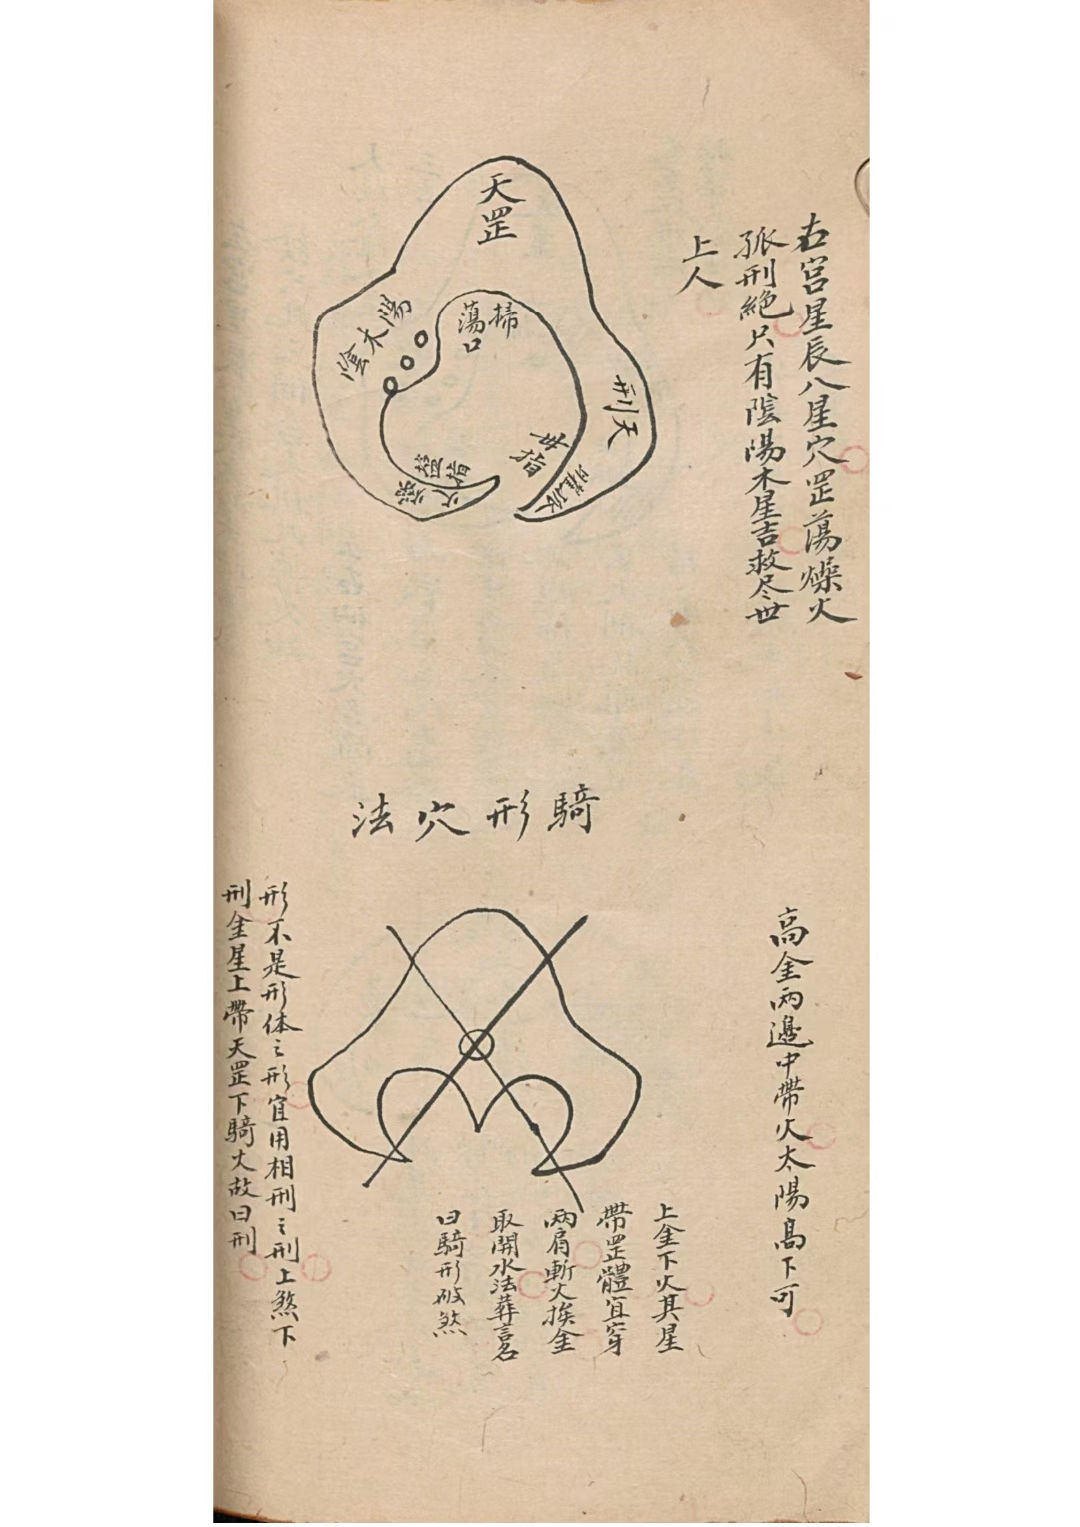 右宮星辰八星穴罡蕩燥火
孤刑絕只有陰陽木星吉救尽世
上人
天罡
掃
蕩
口
陽木陰
刑天
孤
火燥
騎形穴法
高金兩邊中帶火太陽高下可
上金下火其星
帶罡體宜穿
兩肩斬火挨金
取開水法葬言名
曰騎形破煞
形不是形体之形宜用相刑之刑上煞下
刑金星上帶天罡下騎火故曰刑